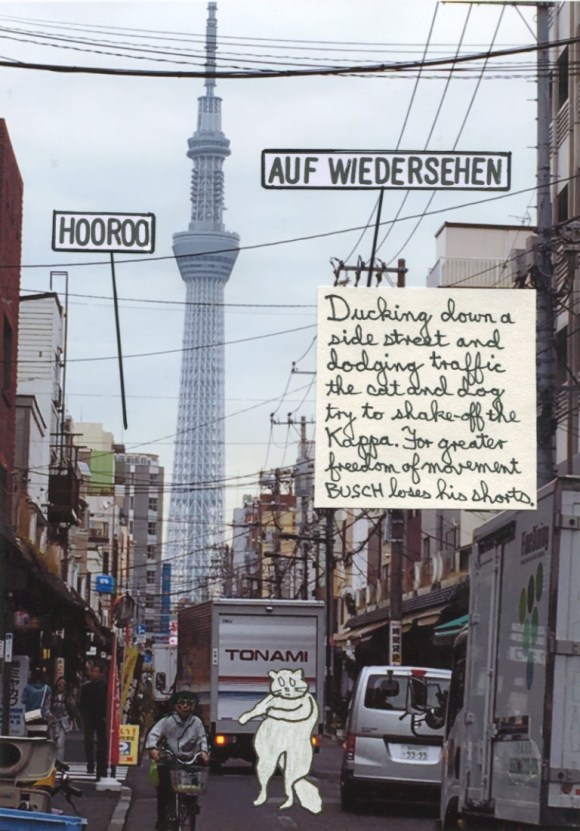 AUF WIEDERSEHEN
HOOROO
Ducking down a
side street and
dodging traffic
the cat and dog
try to shake-off the
Kappa. For greater
freedom of movement
BUSCH loses his shorts.
TONAMI
33-35